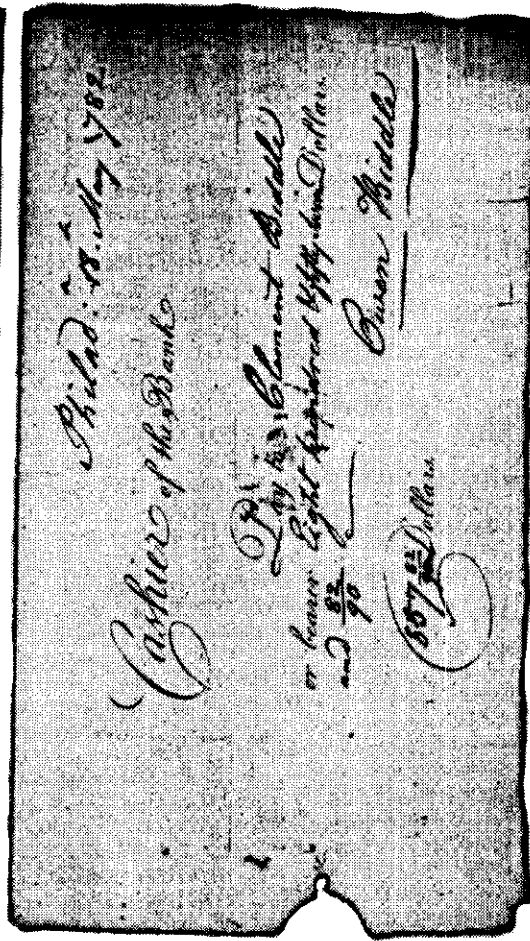 Philad.ᵃ 18. May 1782
Cashier of the Bank
Pay to Clement Biddle
or bearer Eight hundred & fifty seven Dollars
and 82/90
Owen Biddle
857 82/90 Dollars